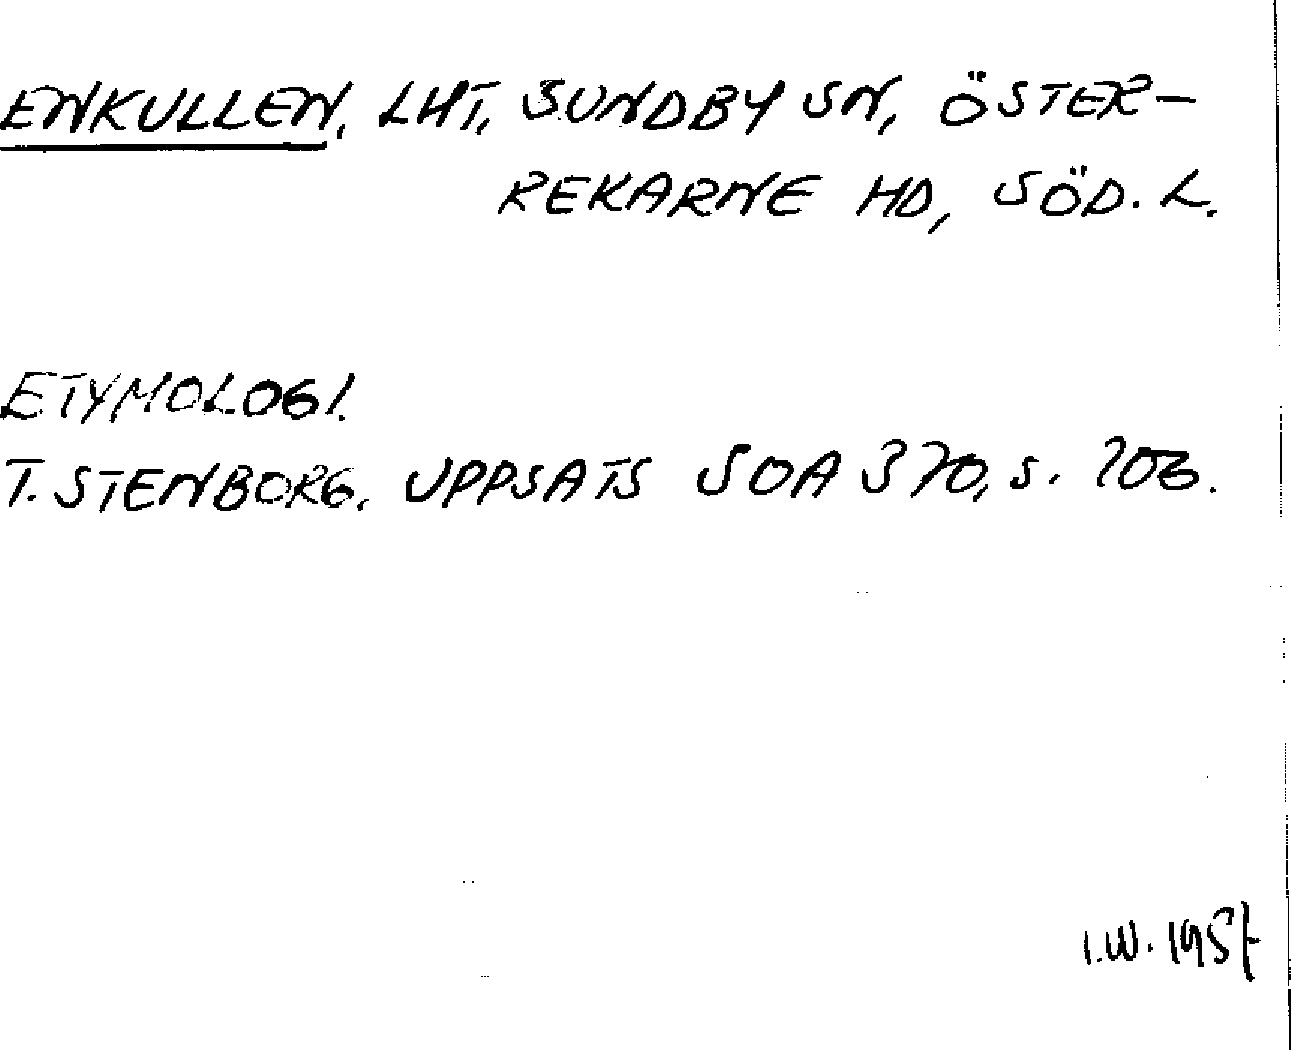 ENKULLEN. LHT, SUNDBY SN, ÖSTER-
REKARNE HD, SÖD. L.
ETYMOLOGI.
T. STENBORG. UPPSATS SOA 370, s.
I.W.